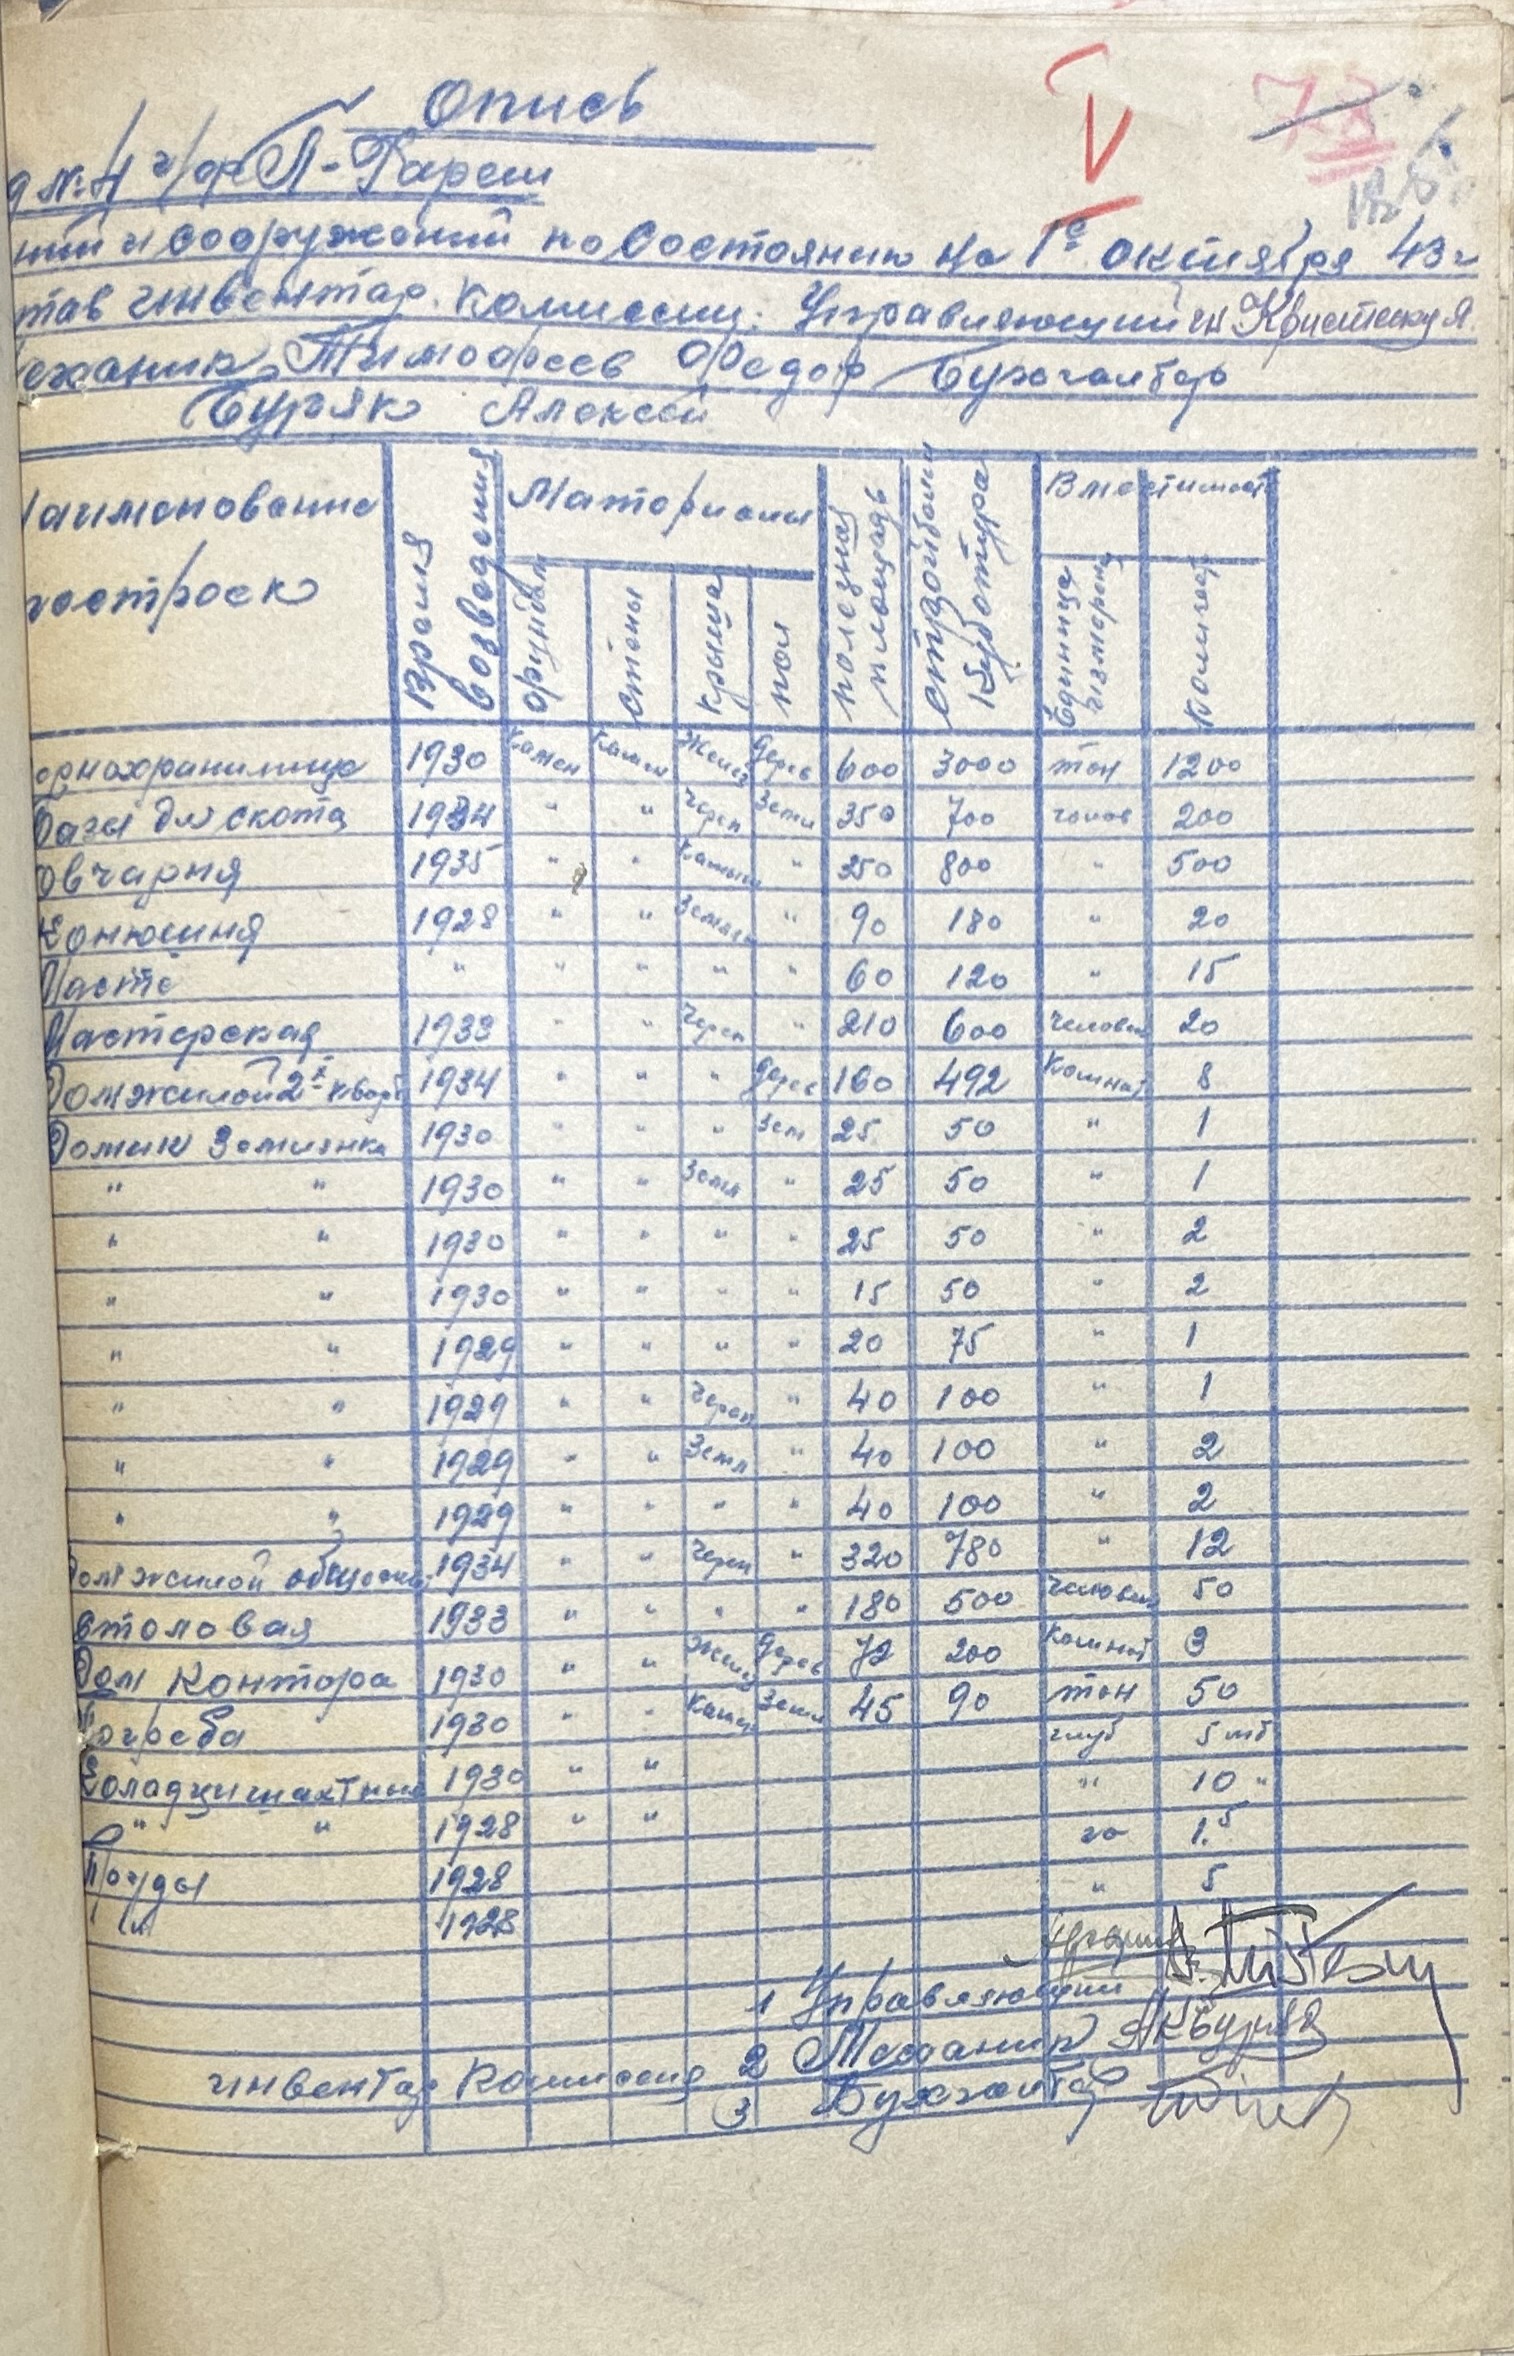 Опись
№ 4
ний и сооружений по Состоянию на 1е октября 43 г
тав инвентар. Комиссии: Управляющий
еханик Тимофеев Федор Бухгалтер
Буряк Алексей
Наименование построек | Время возведения | Материалы | полезная площадь | Кубатура | Вместимост
фундам | стены | крыша | пол | Единица измерения | Количест
ернохранилище 1930 Камен Камен Желез Дерев 600 3000 тон 1200
Базы для скота 1934 " " Череп Земл 350 700 голов 200
Овчарня 1935 " " Камыш " 350 800 " 500
Конюшня 1928 " " Землян " 90 180 " 20
" " " " " 60 120 " 15
Мастерская 1933 " " Череп " 210 600 Человек 20
Дом жилой 2х кварт 1934 " " " Дерев 160 492 Комнат 8
Домик Землянка 1930 " " " Зем 25 50 " 1
" " 1930 " " Земл " 25 50 " 1
" " 1930 " " " " 25 50 " 2
" " 1930 " " " " 15 50 " 2
" " 1929 " " " " 20 75 " 1
" " 1929 " " Череп " 40 100 " 1
" " 1929 " " Земл " 40 100 " 2
" " 1929 " " " " 40 100 " 2
Дом жилой общежи 1934 " " Череп " 320 780 " 12
Столовая 1933 " " " " 180 500 Человек 50
Дом Контора 1930 " " Желез Дерев 72 200 Комнат 3
Погреба 1930 " " Камыш Земл 45 90 тон 50
Коладци шахтные 1930 " " глуб 5 мт
" " 1928 " " " 10 "
Пруды 1928 га 1.5
" 1928 " 5
1 Управляющий
инвентар Комиссия 2 Механик
3 Бухгалтер